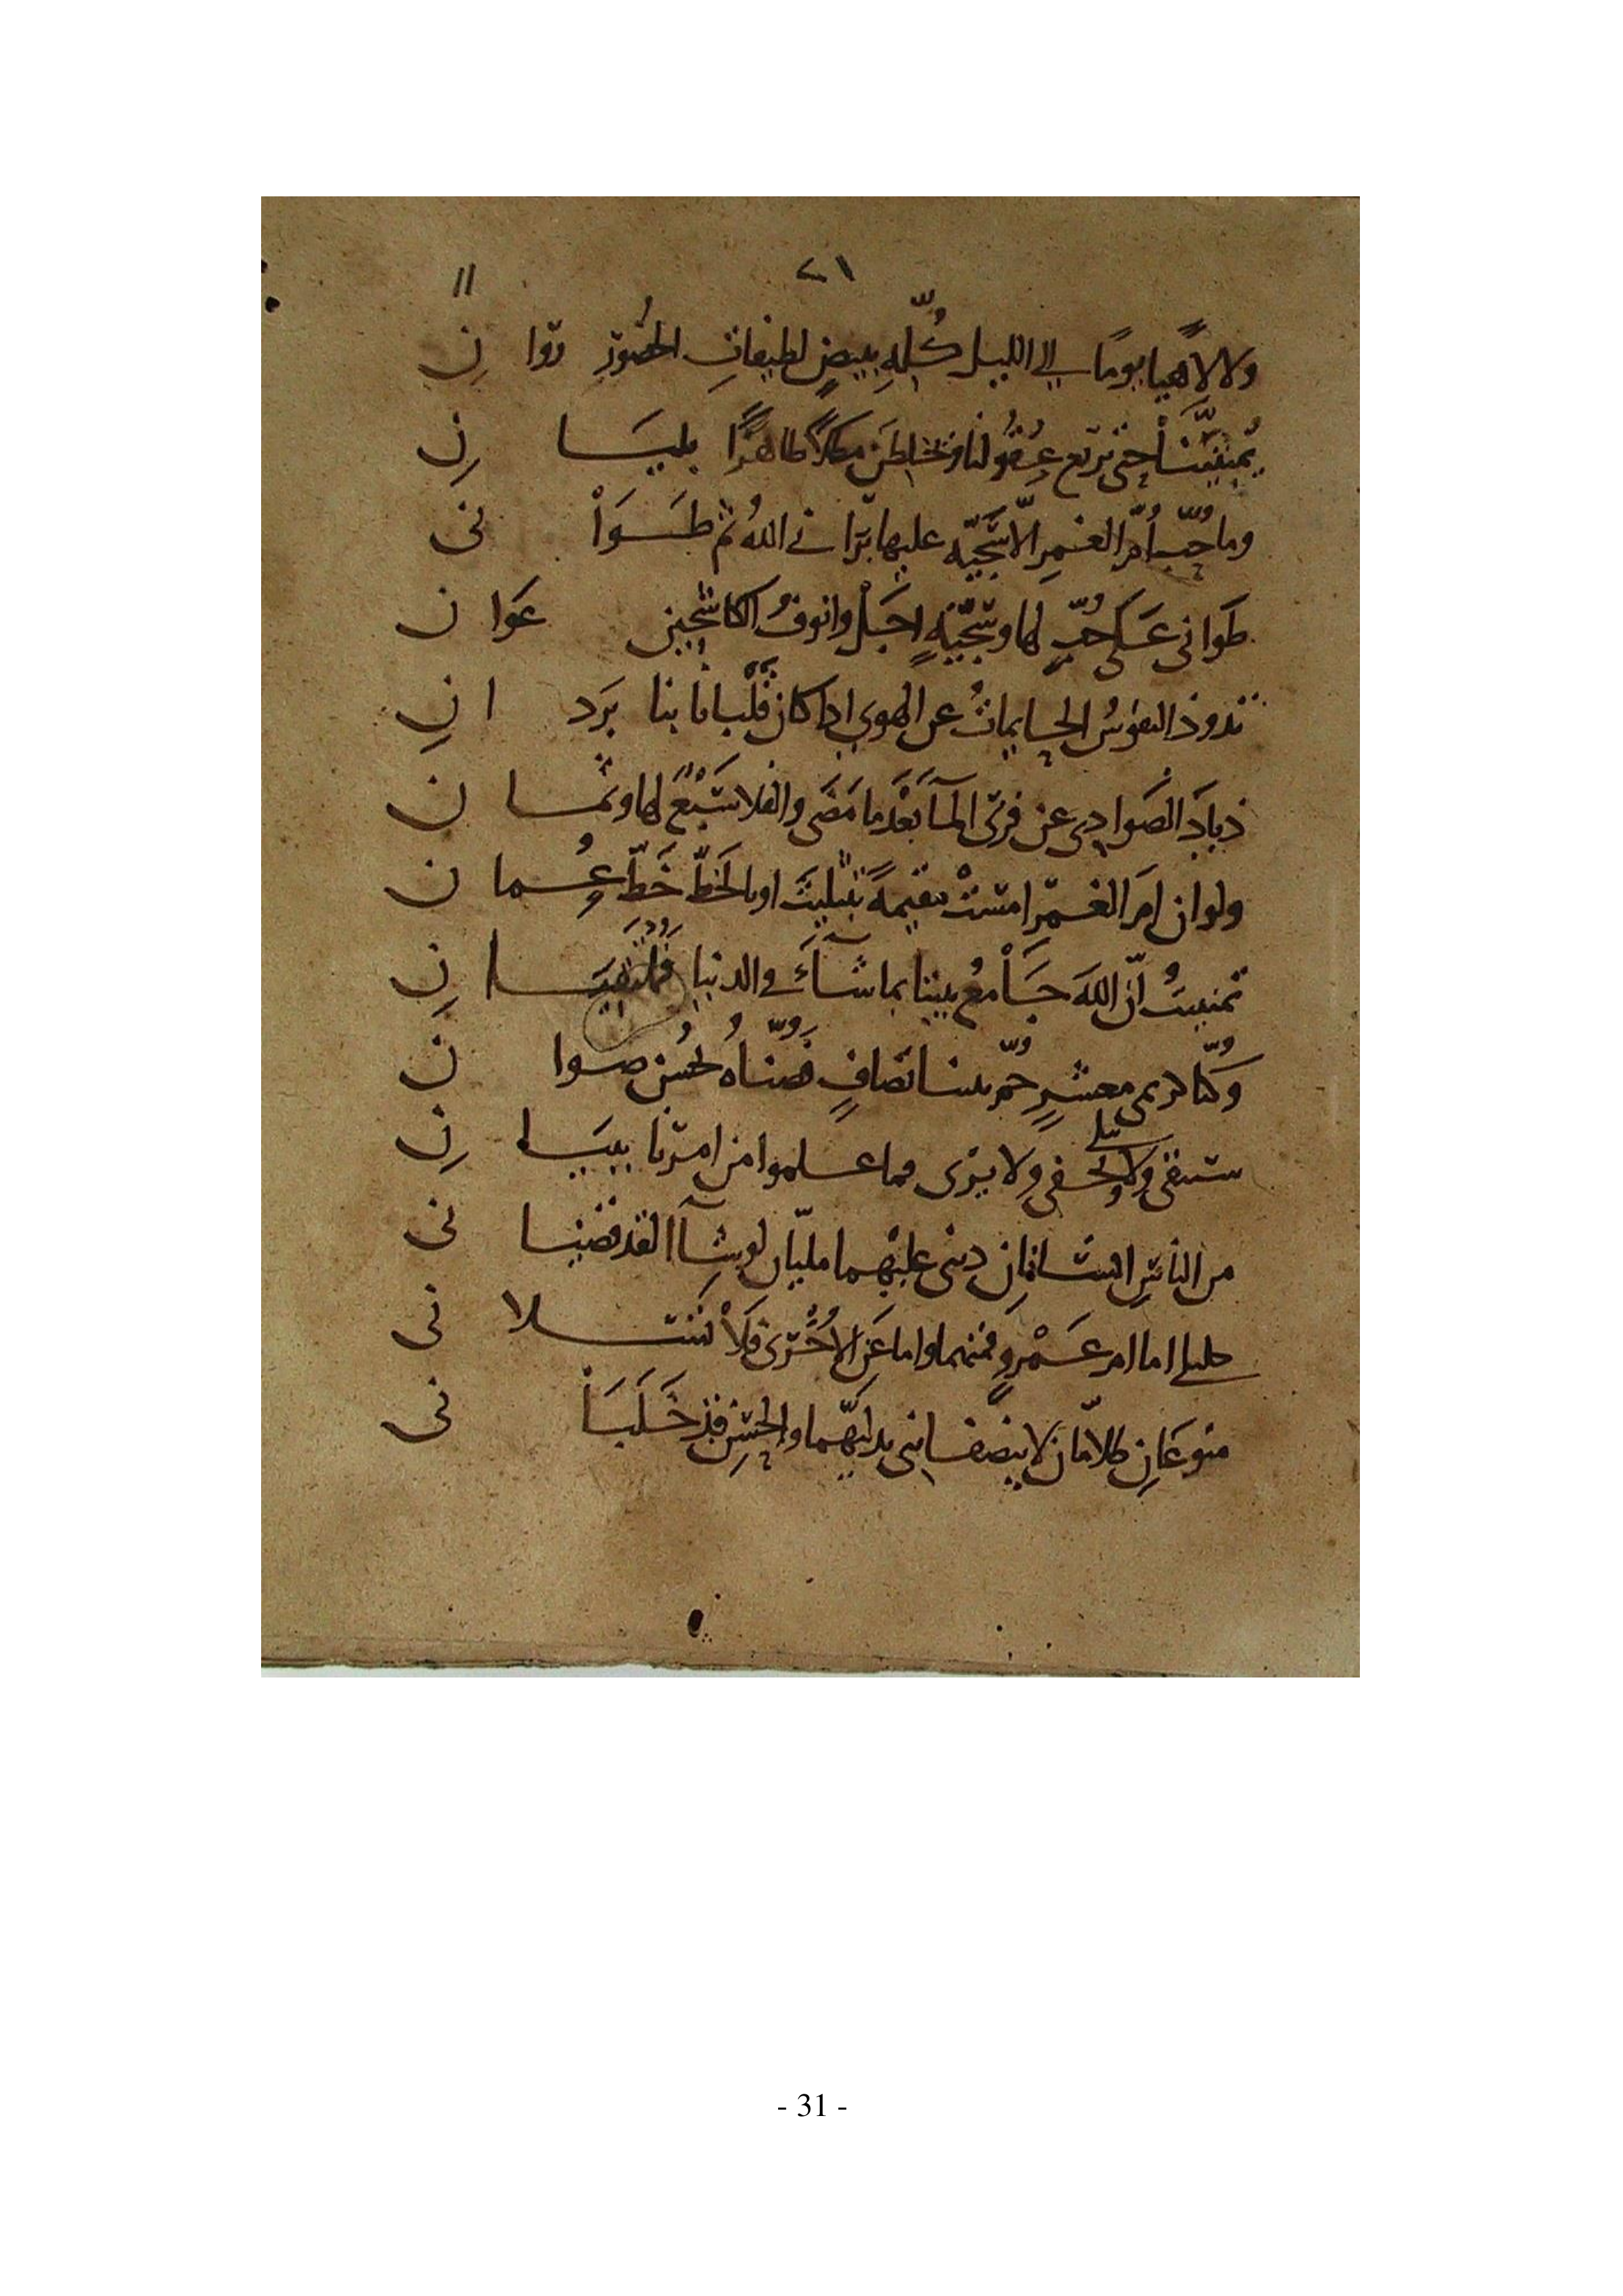 ٢١ ١١
ولا لاهيا يومًا الى الليل كُلّهِ ببيضٍ لطيفاتِ الخُصُورِ روَانِ
يُمَنِّينَنَا حتى ترِيع عُقُولنا ويخلِطنَ مطلاً ظاهرًا بليَانِ
وما حُبُّ أُمّ الغمرِ الّا سَجيّه عليها بَرَاني اللهُ ثم طَوَانى
طَوَانى عَلَى حُبٍّ لها وسَجيّةٍ اجَلْ وانوفُ الكاشحين عَوَان
تذود النفوسُ الحايماتُ عن الهوى اذا كان قلبانا بنا يَردانِ
ذيادَ الصَوَادى عن قرى المآ بَعْدَما مَضَى والفلا سَبْعٌ لها وثمان
ولو ان امَ الغمرِ امسَتْ مقيمةً بتثليثَ او بالخَطّ خَطّ عُمان
تمنيتُ انّ اللهَ جَامعُ بيننا بما شآءَ فى الدنيا فملتَقيَانِ
وكُنّا كريمى معشرٍ حُمّ بيننا تصافٍ فصُنّاهُ بحُسْن صوان
ستبقى ولا تخفى ولا يرى مما علموا من امرنا ببيَانِ
من الناسِ انسانانِ دينى عليهما مليّان لو شآا لقد قضيانى
خليلى اما ام عَمْروٍ فمنهما واما عَن الأُخْرى فَلَا تَسَلانى
منوعَانِ ظلّامَان لا ينصفاننى بدلّيهما والحُسْنِ قد خَلَبَانى
- 31 -